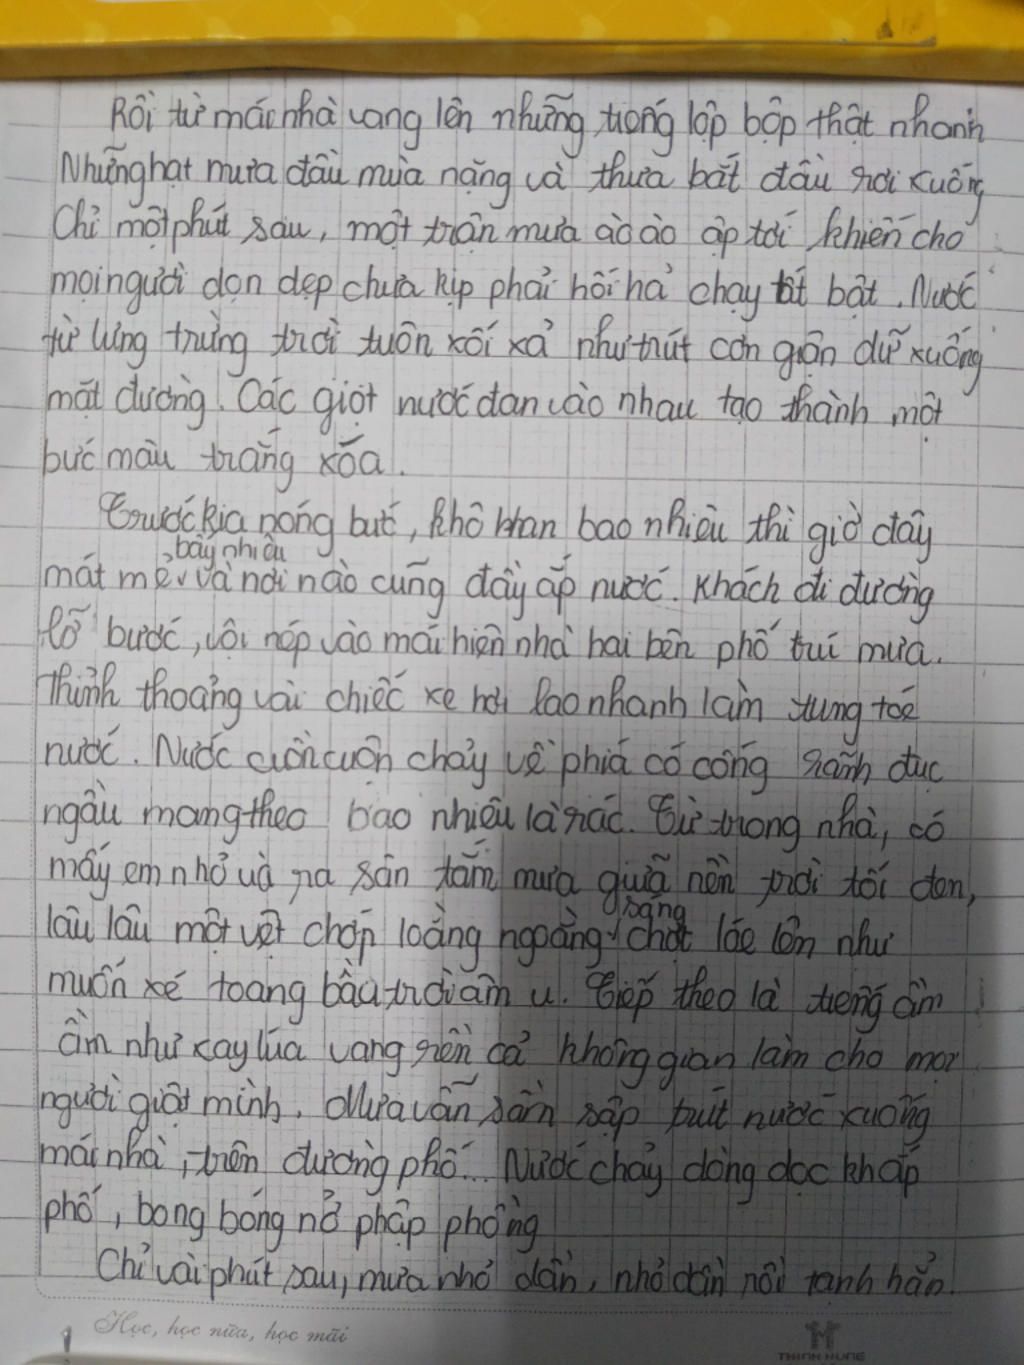 Rồi từ mái nhà vang lên những tiếng lộp bộp thật nhanh
Những hạt mưa đầu mùa nặng và thưa bắt đầu rơi xuống
Chỉ một phút sau, một trận mưa ào ào ập tới khiến cho
mọi người dọn dẹp chưa kịp phải hối hả chạy tất bật. Nước
từ lưng trừng trời tuôn xối xả như trút cơn giận dữ xuống
mặt đường. Các giọt nước đan vào nhau tạo thành một
bức màu trắng xóa.
Trước kia nóng bức, khô khan bao nhiêu thì giờ đây
mát mẻ bây nhiêu và nơi nào cũng đầy ắp nước. Khách đi đường
lỡ bước, vội nép vào mái hiên nhà hai bên phố trú mưa.
Thỉnh thoảng vài chiếc xe hơi lao nhanh làm tung toé
nước. Nước cuồn cuộn chảy về phía có cống rãnh đục
ngầu mang theo bao nhiêu là rác. Từ trong nhà, có
mấy em nhỏ ùa ra sân tắm mưa giữa nền trời tối đen,
lâu lâu một vệt chớp loằng ngoằng sáng chợt lóe lên như
muốn xé toang bầu trời âm u. Tiếp theo là tiếng ầm
ầm như xay lúa vang rền cả không gian làm cho mọi
người giật mình. Mưa vẫn sầm sập trút nước xuống
mái nhà, trên đường phố... Nước chảy dòng dọc khắp
phố, bong bóng nở phập phồng
Chỉ vài phút sau, mưa nhỏ dần, nhỏ dần rồi tạnh hẳn.
Học, học nữa, học mãi
THINH HUNG